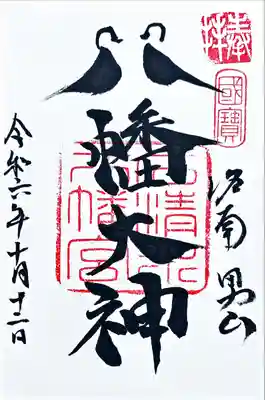 奉拝
國寶
洛南 男山
八幡大神
石清水
八幡宮
令和六年十月十二日